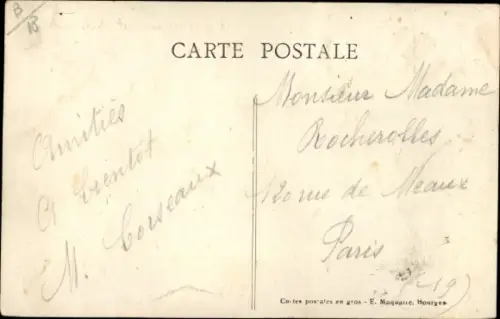 B
B
CARTE POSTALE
Amitiés
A bientot
M. Corseaux
Monsieur Madame
Rocherolles
120 rue de Meaux
Paris
(19)
Cartes postales en gros - E. Maquaire, Bourges